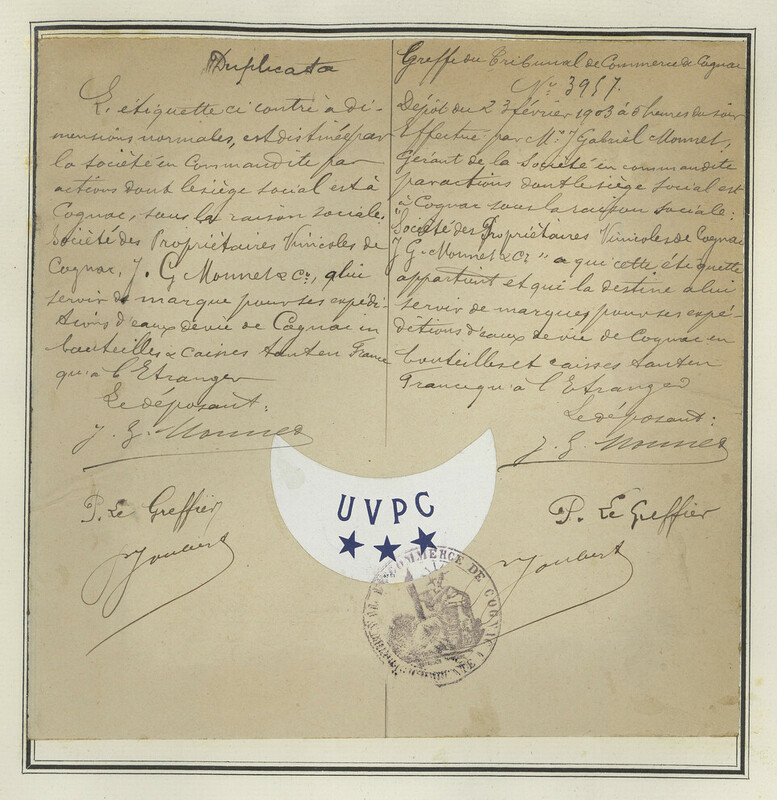 Duplicata
L'étiquette ci contre à di-
mensions normales, est distinée par
la Société en Commandite par
actions dont le siège social est à
Cognac, sous la raison sociale.
Société des Propriétaires Vinicoles de
Cognac, J. G Monnet & Co, a lui
servir de marque pour ses expédi-
tions d'eaux de vie de Cognac en
bouteilles & caisses tant en France
qu'à l'Etranger
Le déposant:
J. G. Monnet
P. Le Greffier
Joubert
Greffe du Tribunal de Commerce de Cognac
No 3957.
Dépôt du 23 février 1903 à 5 heures du soir
Effectué par Mr J Gabriel Monnet,
Gérant de la Société en commandite
par actions dont le siège social est
à Cognac sous la raison sociale:
"Société des Propriétaires Vinicoles de Cognac
J G. Monnet & Co" a qui cette étiquette
appartient et qui la destine a lui
servir de marques pour ses expé-
ditions d'eaux de vie de Cognac en
bouteilles et caisses tant en
France qu'à l'Etranger
Le déposant:
J. G. Monnet
P. Le Greffier
Joubert
UVPC
COMMERCE DE COGNAC